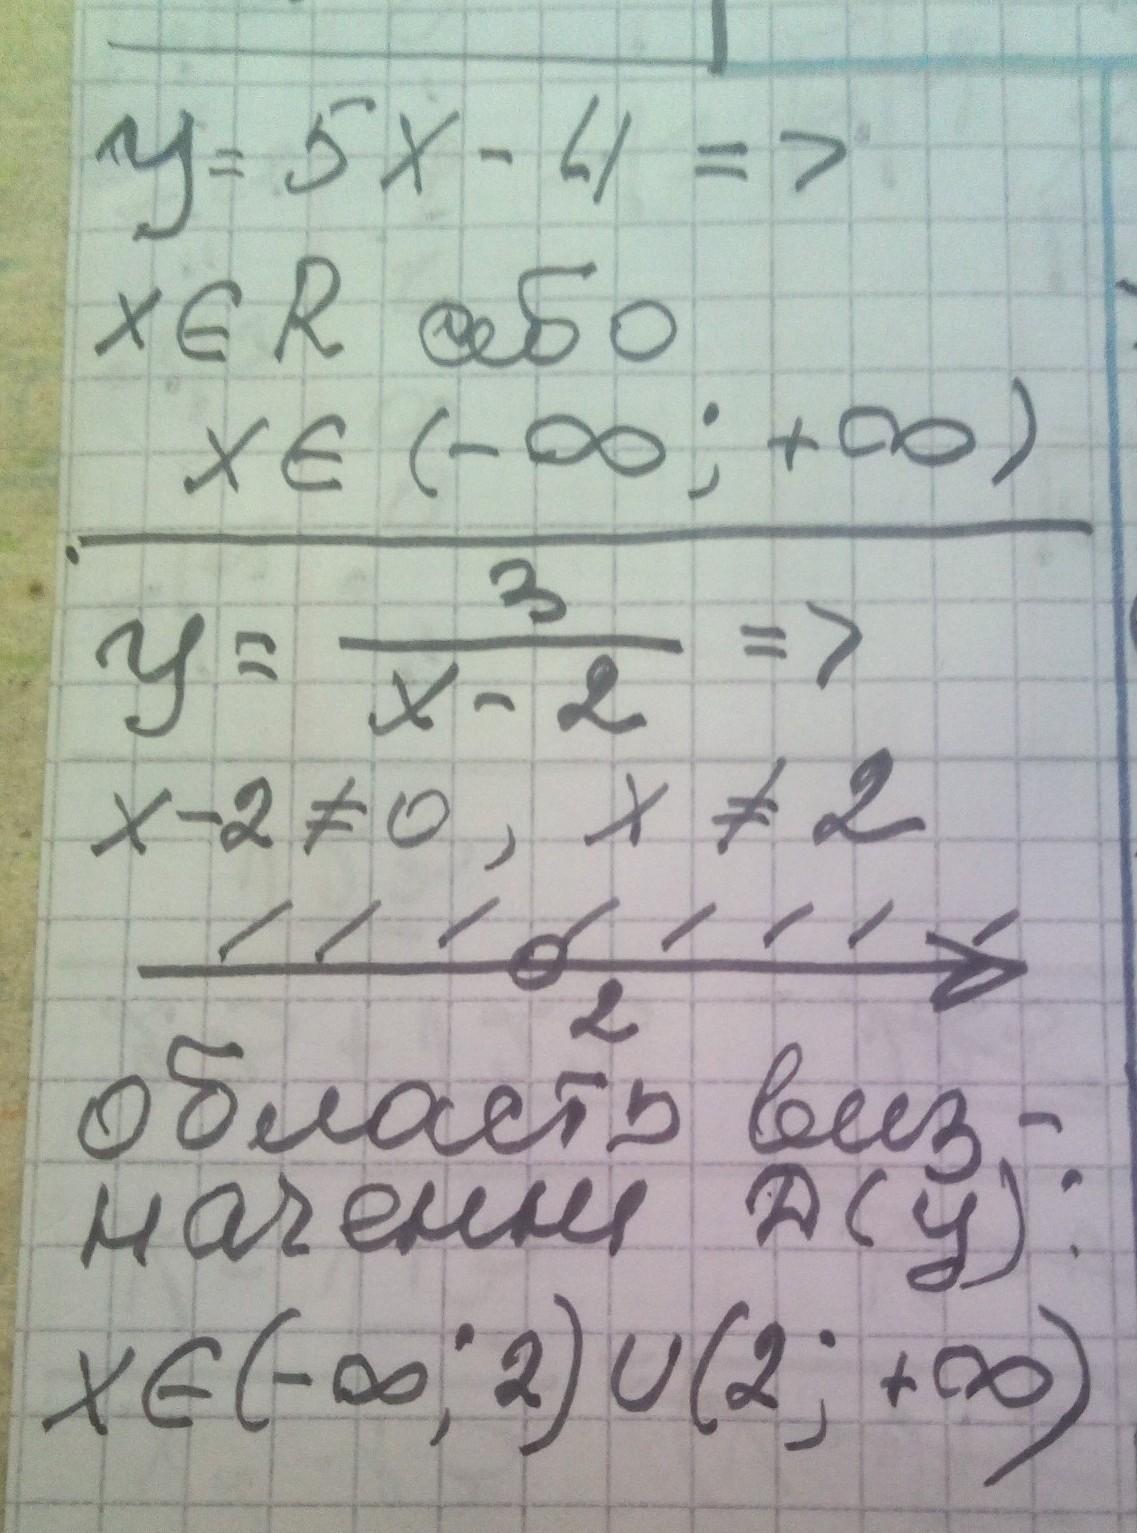 y = 5x - 4 =>
x ∈ R або
x ∈ (-∞; +∞)
y = 3/(x - 2) =>
x - 2 ≠ 0, x ≠ 2
2
область виз-
наченни D(y):
x ∈ (-∞; 2) ∪ (2; +∞)